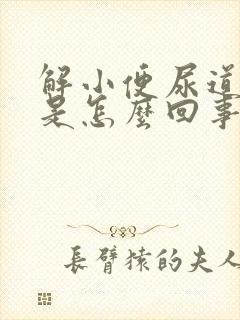 解小便尿道
是怎麼回事
長臂猿的夫人